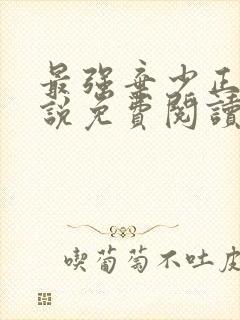 最强弃少正
說免費閱讀
喫葡萄不吐皮